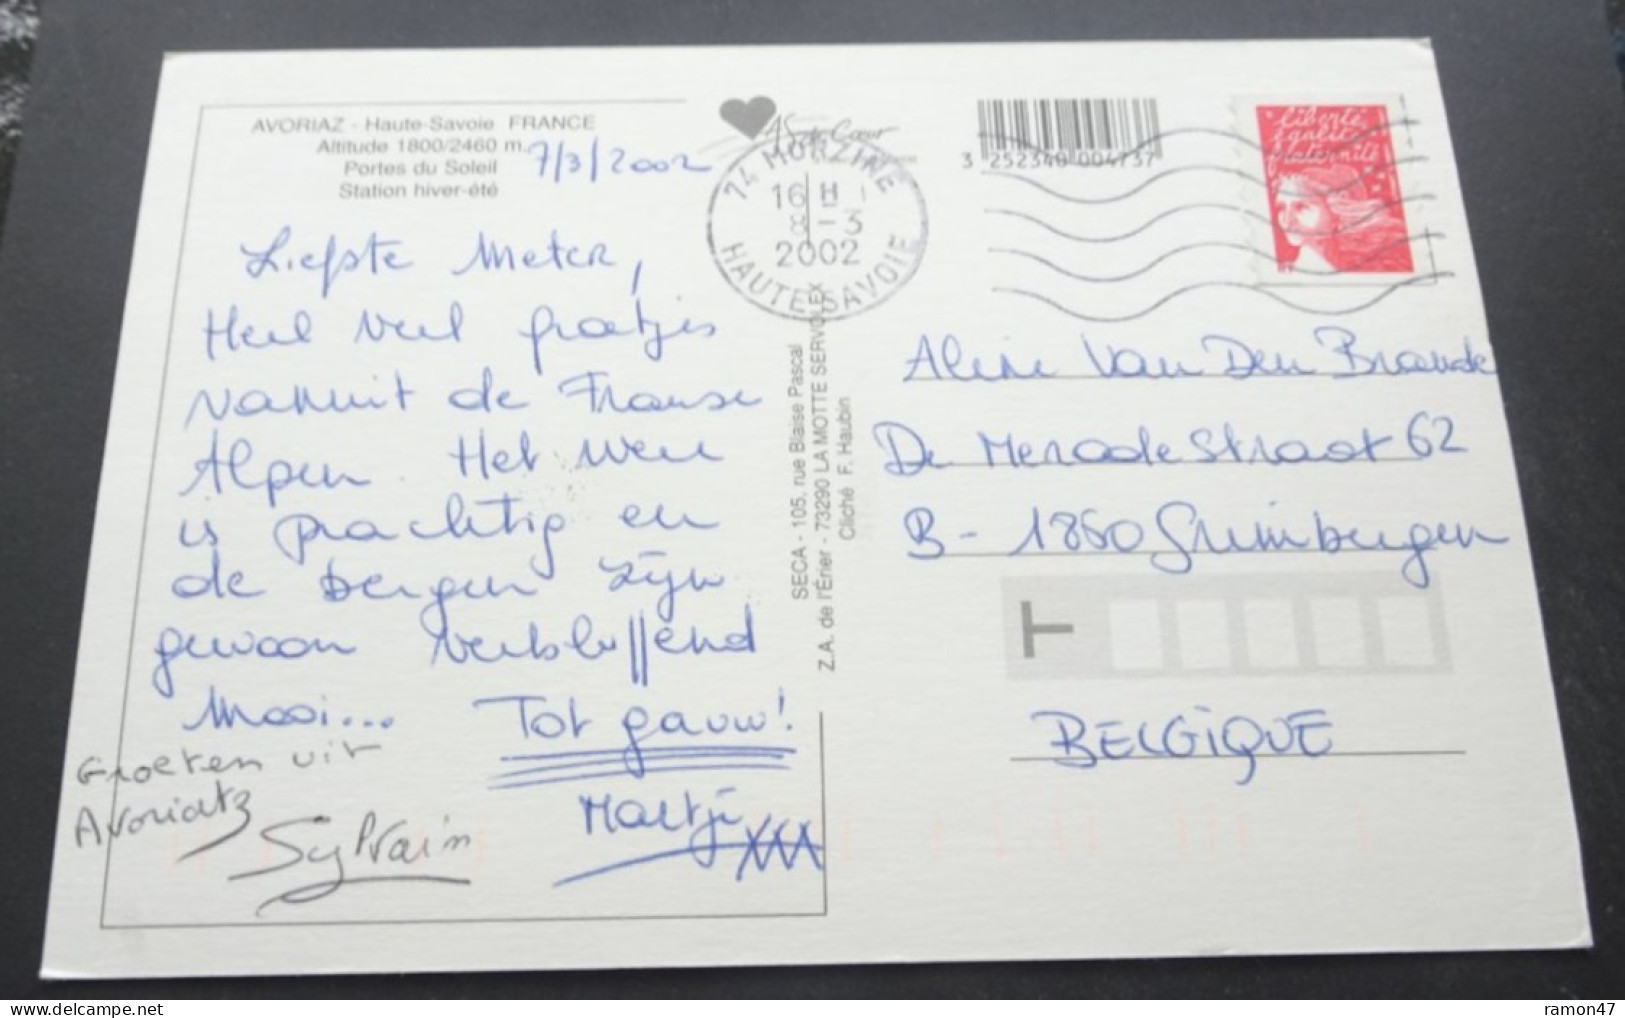 AVORIAZ - Haute-Savoie FRANCE
Altitude 1800/2460 m.
Portes du Soleil
Station hiver-été
7/3/2002
Liefste Meter,
Heel veel groetjes
vanuit de Franse
Alpen. Het weer
is prachtig en
de bergen zijn
gewoon verbluffend
mooi... Tot gauw!
Martji
XXX
Groeten uit
Avoriatz
Sylvain
SECA - 105, rue Blaise Pascal
Z.A. de l'Érier - 73290 LA MOTTE SERVOLEX
Cliché F. Haubin
AS de Cœur
74 MORZINE
16 H
8 - 3
2002
HAUTE SAVOIE
3 252340 004737
liberté
égalité
fraternité
Aline Van Den Brande
De Merode Straat 62
B - 1850 Grimbergen
T
BELGIQUE
ramon47